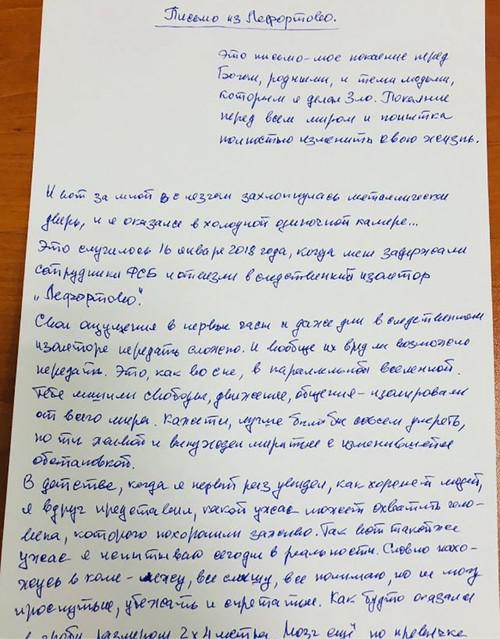 Письмо из Лефортово.
Это письмо-мое покаяние перед
Богом, родными, и теми людьми,
которым я делал Зло. Покаяние
перед всем миром и попытка
полностью изменить свою жизнь.
И вот за мной с лязгом захлопнулась металлическая
дверь, и я оказался в холодной одиночной камере...
Это случилось 16 января 2018 года, когда меня задержали
сотрудники ФСБ и отвезли в следственный изолятор
„Лефортово".
Свои ощущения в первые часы и даже дни в следственном
изоляторе передать сложно. И вообще их вряд ли возможно
передать. Это, как во сне, в параллельной вселенной.
Тебя лишили свободы, движение, общения-изолировали
от всего мира. Кажется, лучше было бы совсем умереть,
но ты живой и вынужден мириться с изменившейся
обстановкой.
В детстве, когда я первый раз увидел, как хоронят людей,
я вдруг представил, какой ужас может охватить чело-
века, которого похоронили заживо. Так вот такой же
ужас я испытываю сегодня в реальности. Словно нахо-
жусь в коме - лежу, все слышу, все понимаю, но не могу
проснуться, убежать и спрятаться. Как будто оказался
в гробу размером 2х4 метра. Мозг ещё по привычке